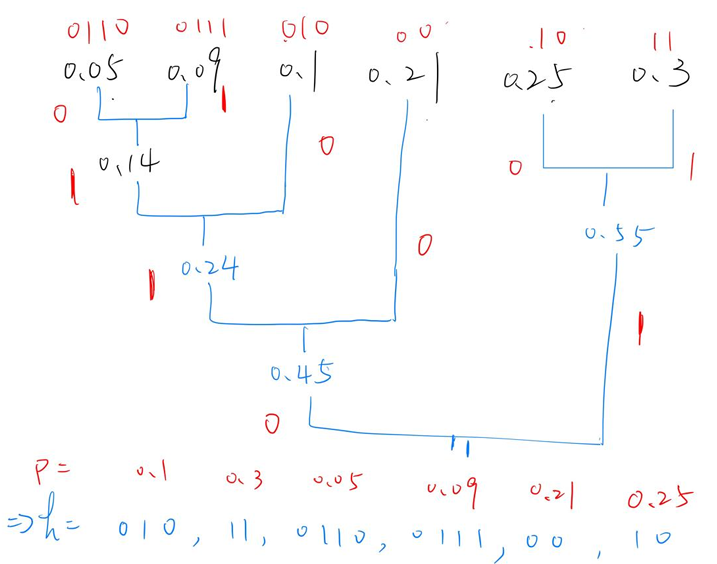 0110 0111 010 00 10 11
0.05 0.09 0.1 0.21 0.25 0.3
0 1
0.14 0 0 1
1
0.55
0.24 0
1
1
0.45
0
1
P = 0.1 0.3 0.05 0.09 0.21 0.25
=> h = 010, 11, 0110, 0111, 00, 10